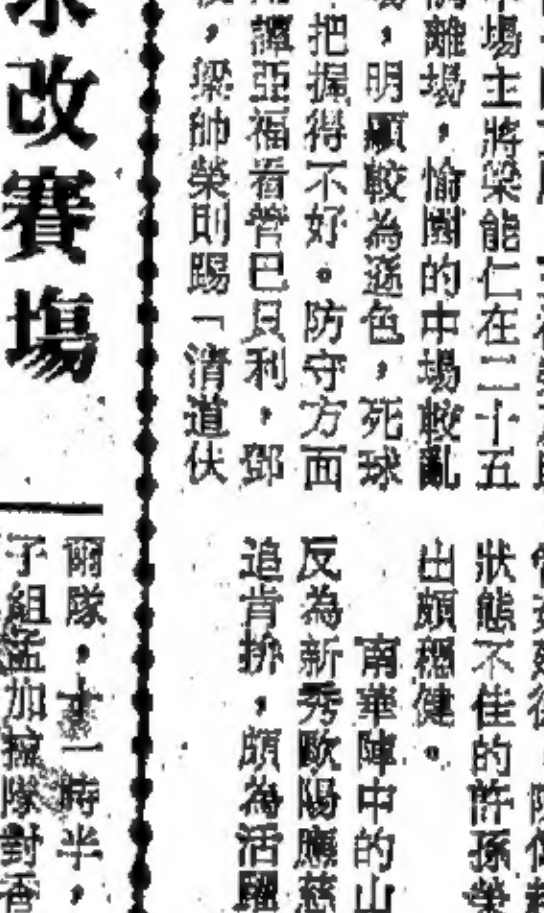 場主將梁能仁在二十五
離場，愉園的中場較亂
，明顯較為遜色，死球
把握得不好。防守方面
譚亞福看管巴貝利，鄧
，梁帥榮則踢「清道伕
狀態不佳的許孫榮
出頗穩健。
南華陣中的山
反為新秀歐陽應慈
追肯拚，頗為活躍
改賽場
隊，十一時半，
子組孟加拉隊對香